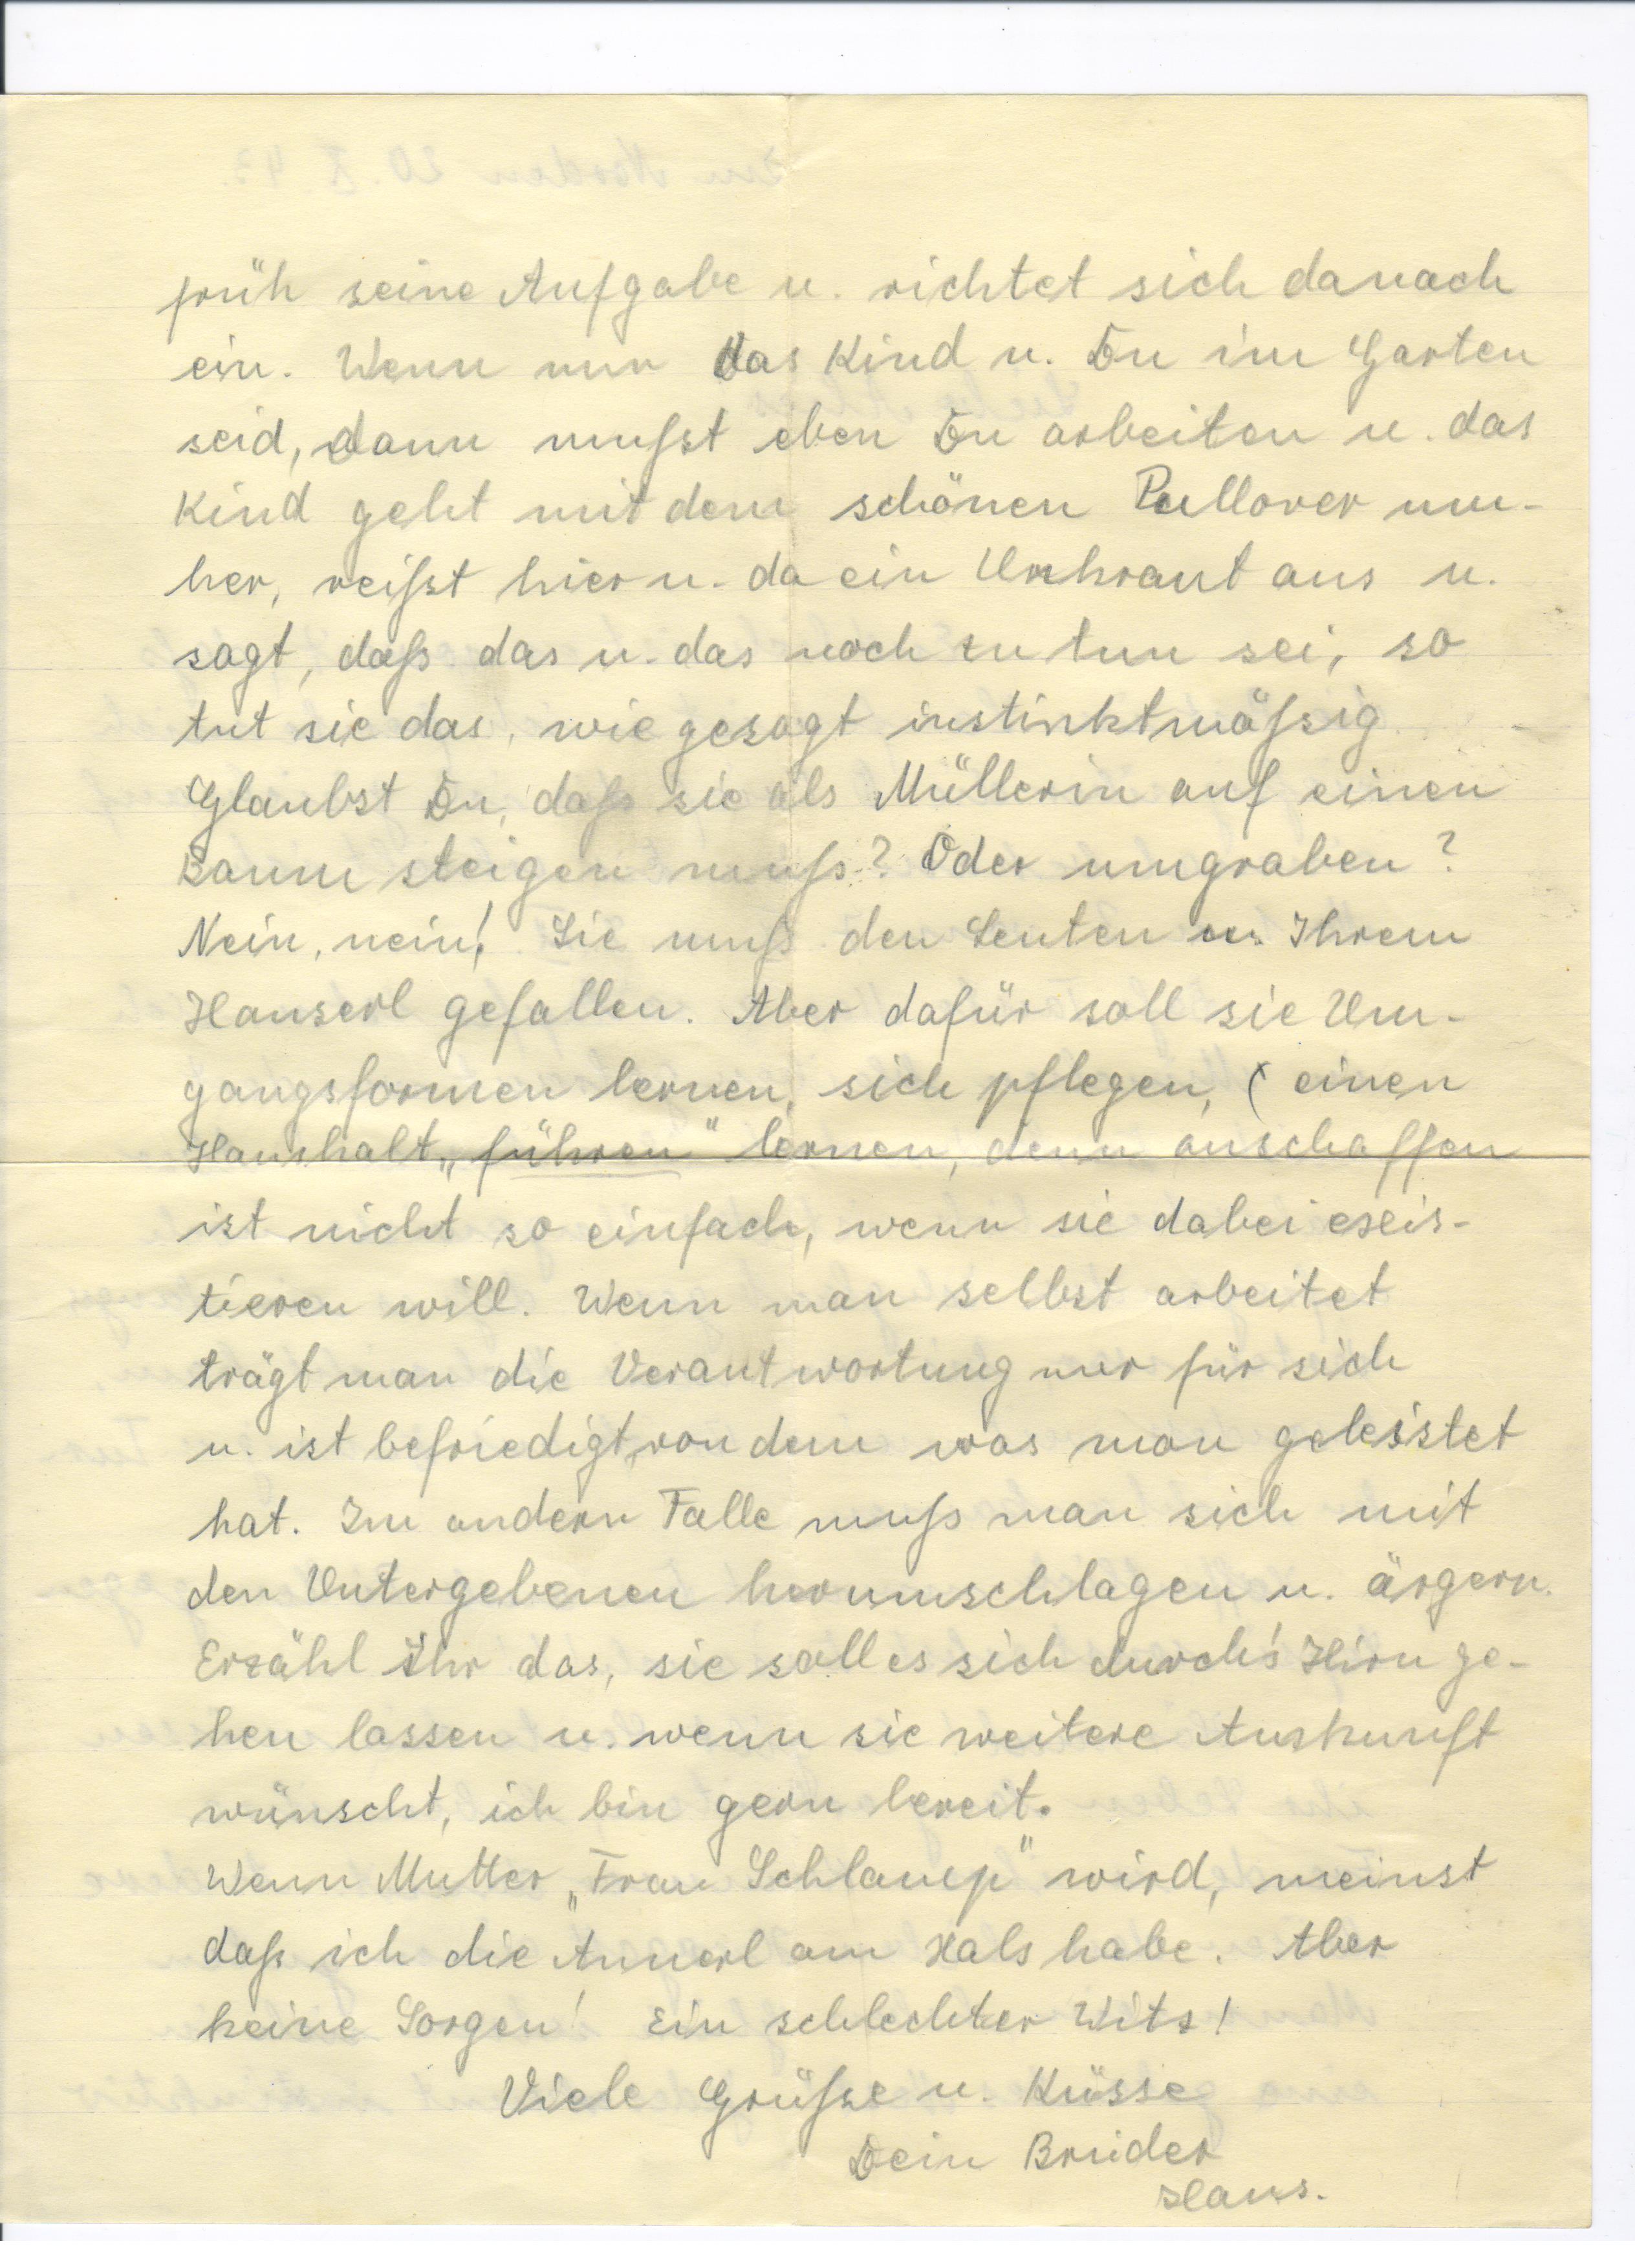 früh seine Aufgabe u. richtet sich danach
ein. Wenn nun das Kind u. Du im Garten
seid, dann mußt eben Du arbeiten u. das
Kind geht mit dem schönen Pullover um-
her, reißt hier u. da ein Unkraut aus u.
sagt, daß das u. das noch zu tun sei, so
tut sie das, wie gesagt instinktmäßig.
Glaubst Du, daß sie als Müllerin auf einen
Baum steigen muß? Oder umgraben?
Nein, nein! Sie muß den Leuten u. Ihrem
Hanserl gefallen. Aber dafür soll sie Um-
gangsformen lernen, sich pflegen, ( einen
Haushalt „führen" lernen, denn anschaffen
ist nicht so einfach, wenn sie dabei exis-
tieren will. Wenn man selbst arbeitet
trägt man die Verantwortung nur für sich
u. ist befriedigt, von dem was man geleistet
hat. Im andern Falle muß man sich mit
den Untergebenen herumschlagen u. ärgern.
Erzähl Ihr das, sie soll es sich durch's Hirn ge-
hen lassen u. wenn sie weitere Auskunft
wünscht, ich bin gern bereit.
Wenn Mutter „Frau Schlamp" wird, meinst
daß ich die Annerl am Hals habe. Aber
keine Sorgen! Ein schlechter Wits!
Viele Grüße u. Küsse
Dein Bruder
Hans.